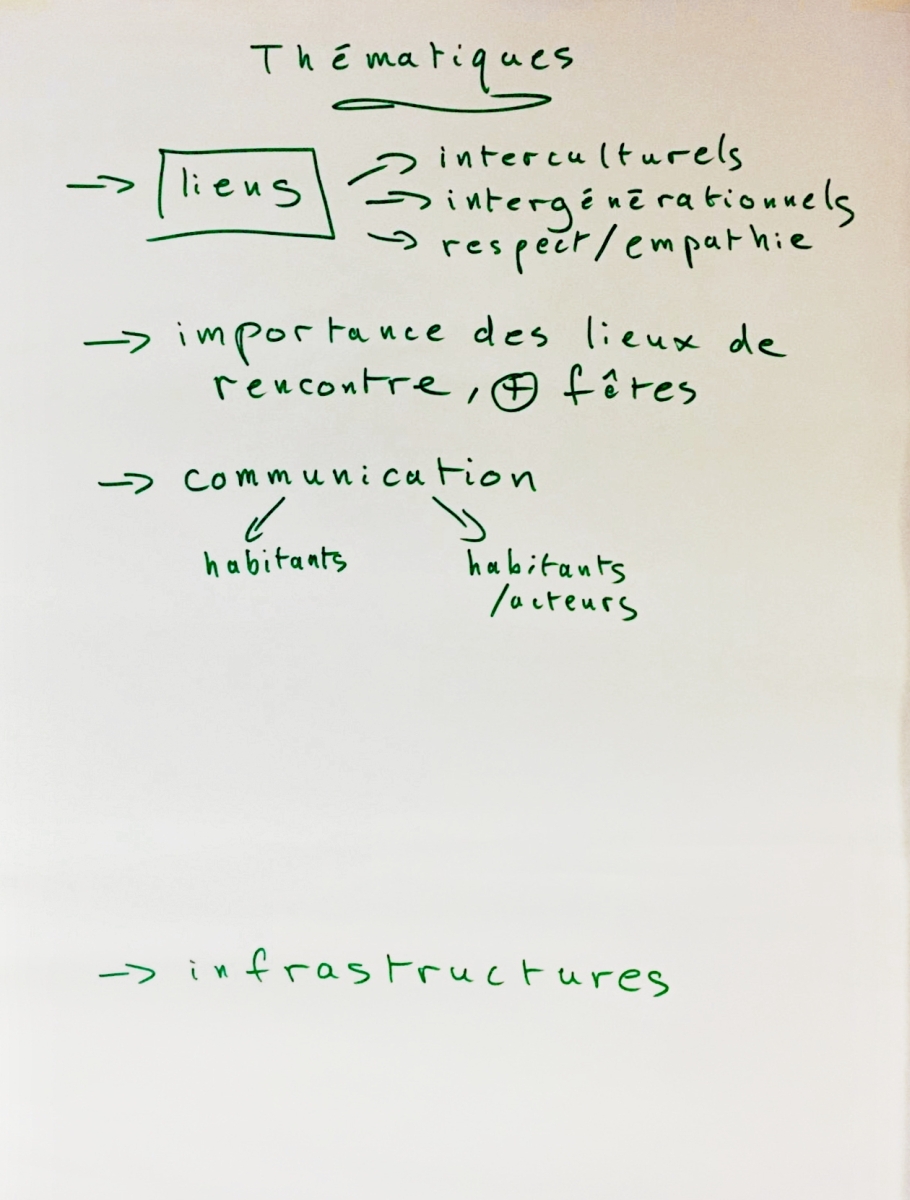 Thématiques
→ liens → interculturels
→ intergénérationnels
→ respect/empathie
→ importance des lieux de
rencontre, ⊕ fêtes
→ communication
habitants habitants
/acteurs
→ infrastructures